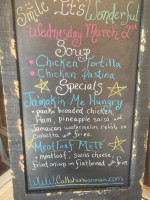 Smile It's Wonderful
Wednesday March 2nd
Soup
• Chicken Tortilla
• Chicken Pastina
Specials
Jamakin Me Hungry
• panko breaded chicken
Ham, pineapple salsa and
Jamaican watermelon relish on
Meatloaf Melt
• meatloaf, swiss cheese,
fried onion on flatbread